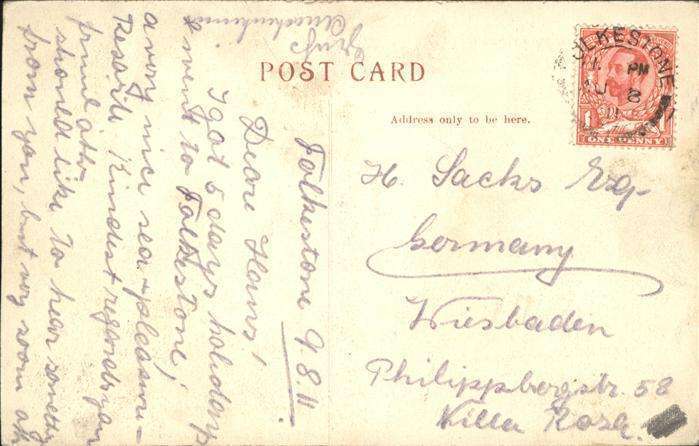 POST CARD
Address only to be here.
FOLKESTONE
PM
ONE PENNY
Folkestone 9.8.11
Deare Hans!
I got 5 days holidays
& went to Folkestone,
a very nice sea & pleasure-
Resort. Kindest regards
should like to hear
from you, but very soon
H. Sacks Esq.
Germany
Wiesbaden
Philippbergstr. 58
Villa Rosa